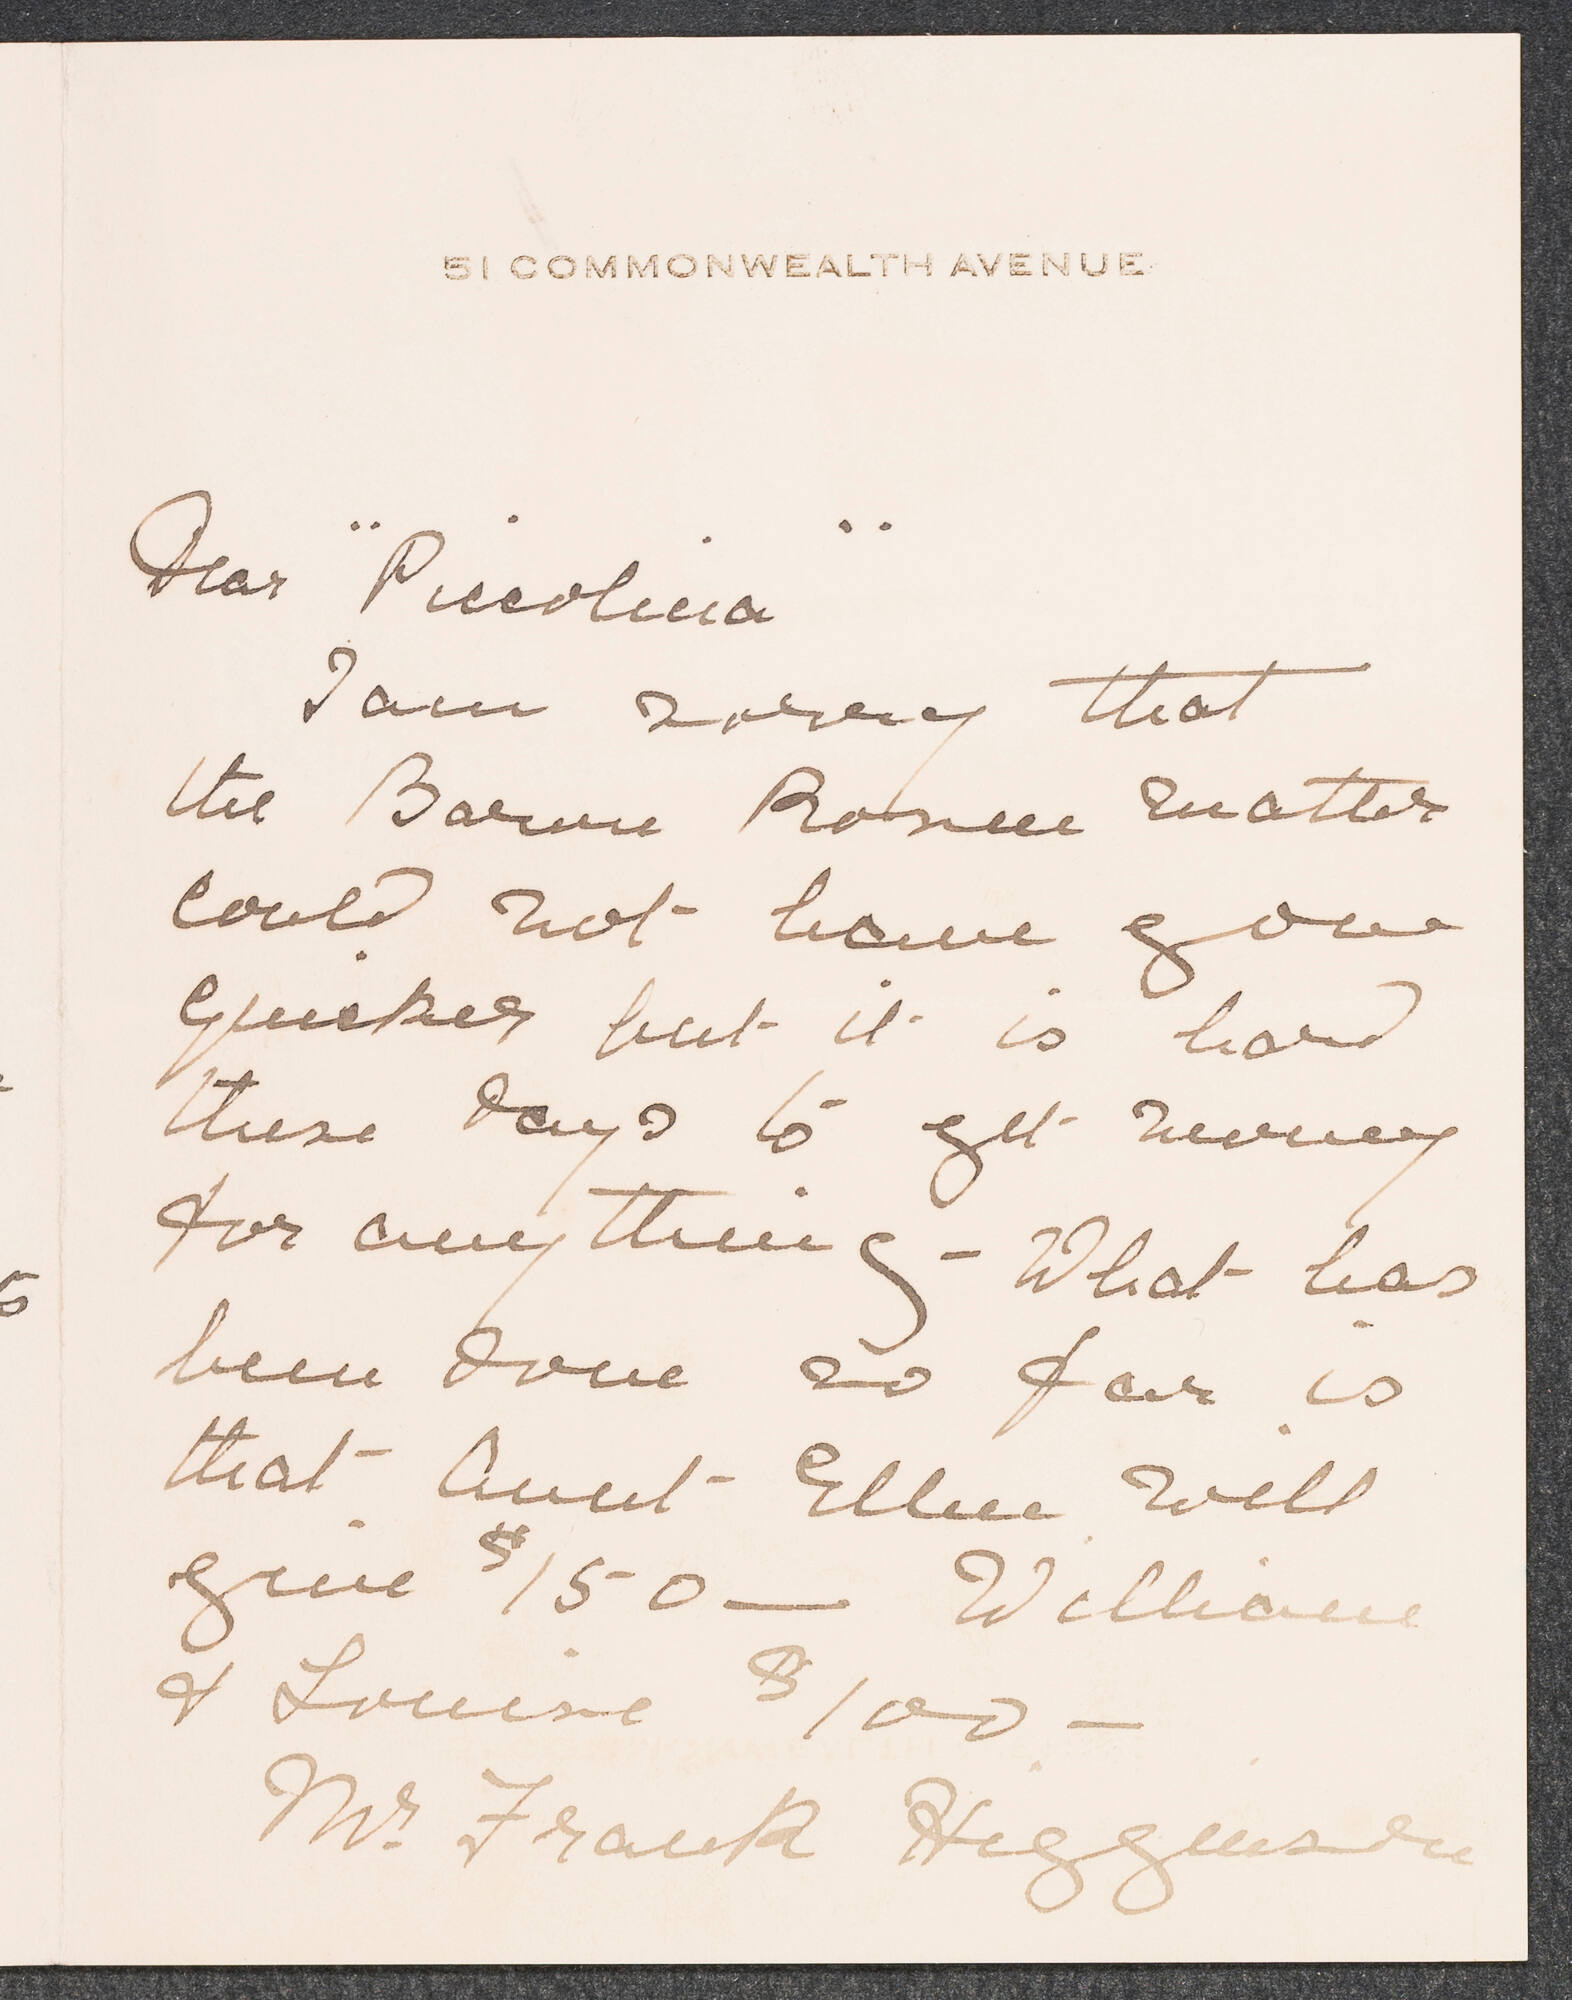 51 COMMONWEALTH AVENUE
Dear "Piccolina"
I am sorry that
the Baron Rosen matter
could not have gone
quicker but it is hard
these days to get money
for anything - What has
been done so far is
that Aunt Ellen will
give $150 — William
& Louise $100 —
Mr. Frank Higginson